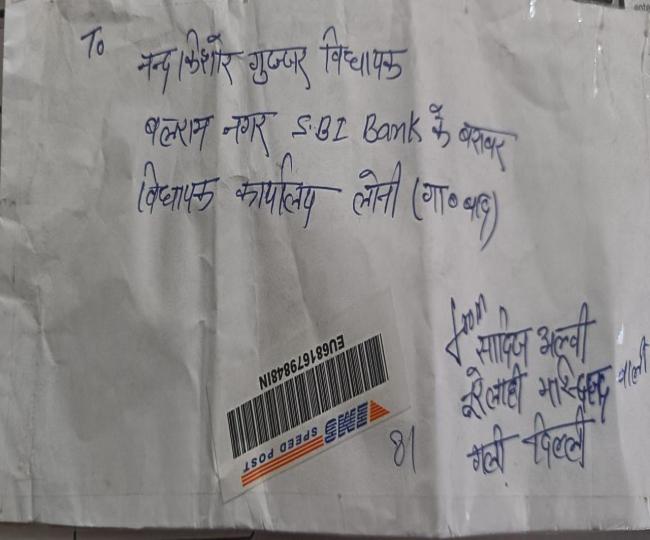 To
नन्द किशोर गुज्जर विधायक
बलराम नगर S.BI Bank के बराबर
विधायक कार्यालय लोनी (गा०बाद)
from
साजिद अल्वी
नूरे लाही मस्जिद वाली
गली दिल्ली
EU681679848IN
EMS
SPEED POST
81